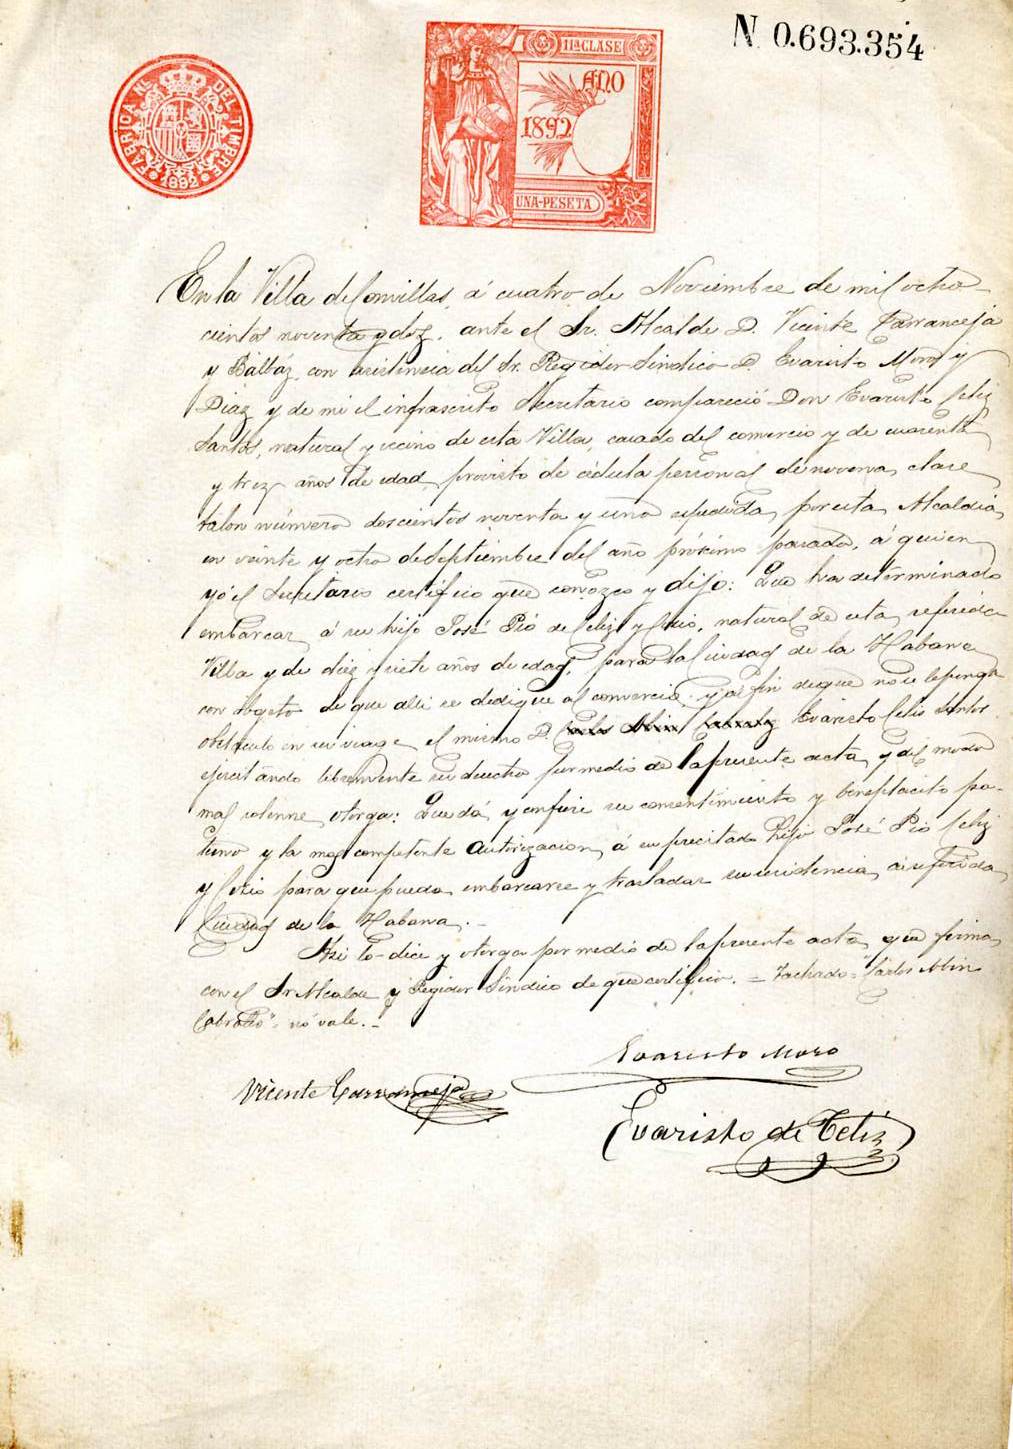 N. 0.693.354
11ª CLASE
AÑO
1892
UNA-PESETA
FÁBRICA NL. DEL TIMBRE
1892
En la Villa de Comillas, á cuatro de Noviembre de mil ocho-
cientos noventa y doz, ante el Sr. Alcalde D. Vicente Carranceja
y Balbáz, con asistencia del Sr. Regidor Sindico D. Evaristo Moro y
Diaz y de mi el infrascrito Secretario compareció Don Evaristo Celiz
Santos, natural y vecino de esta Villa, casado del comercio y de cuarenta
y trez años de edad, provisto de cédula personal de novena clase
talon número doscientos noventa y uno expedida por esta Alcaldia
en veinte y ocho de Septiembre del año próximo pasado, á quien
yo el Secretario certifico que conozco y dijo: Que ha determinado
embarcar á su hijo José Pió de Celiz y, natural de esta referida
Villa y de diez y siete años de edad, para la Ciudad de la Habana
con objeto de que alli se dedique al comercio y al fin de que no se le ponga
obstáculo en su viage el mismo D. Evaristo Celis Santos
ejercitando libremente su derecho por medio de la presente acta, y del modo
mas solenne, otorga: Que dá y confiere su consentimiento y beneplacito pa-
terno y la mas competente autorizacion, á su precitado hijo José Pió Celiz
y para que pueda embarcarse y trasladar su residencia, á referida
Ciudad de la Habana.-
Asi lo dice y otorga por medio de la presente acta, que firma
con el Sr. Alcalde y Regidor Sindico de que certifico. = Tachado = "Carlos Abin
" no vale.-
Evaristo Moro
Vicente Carranceja
Evaristo de Celiz